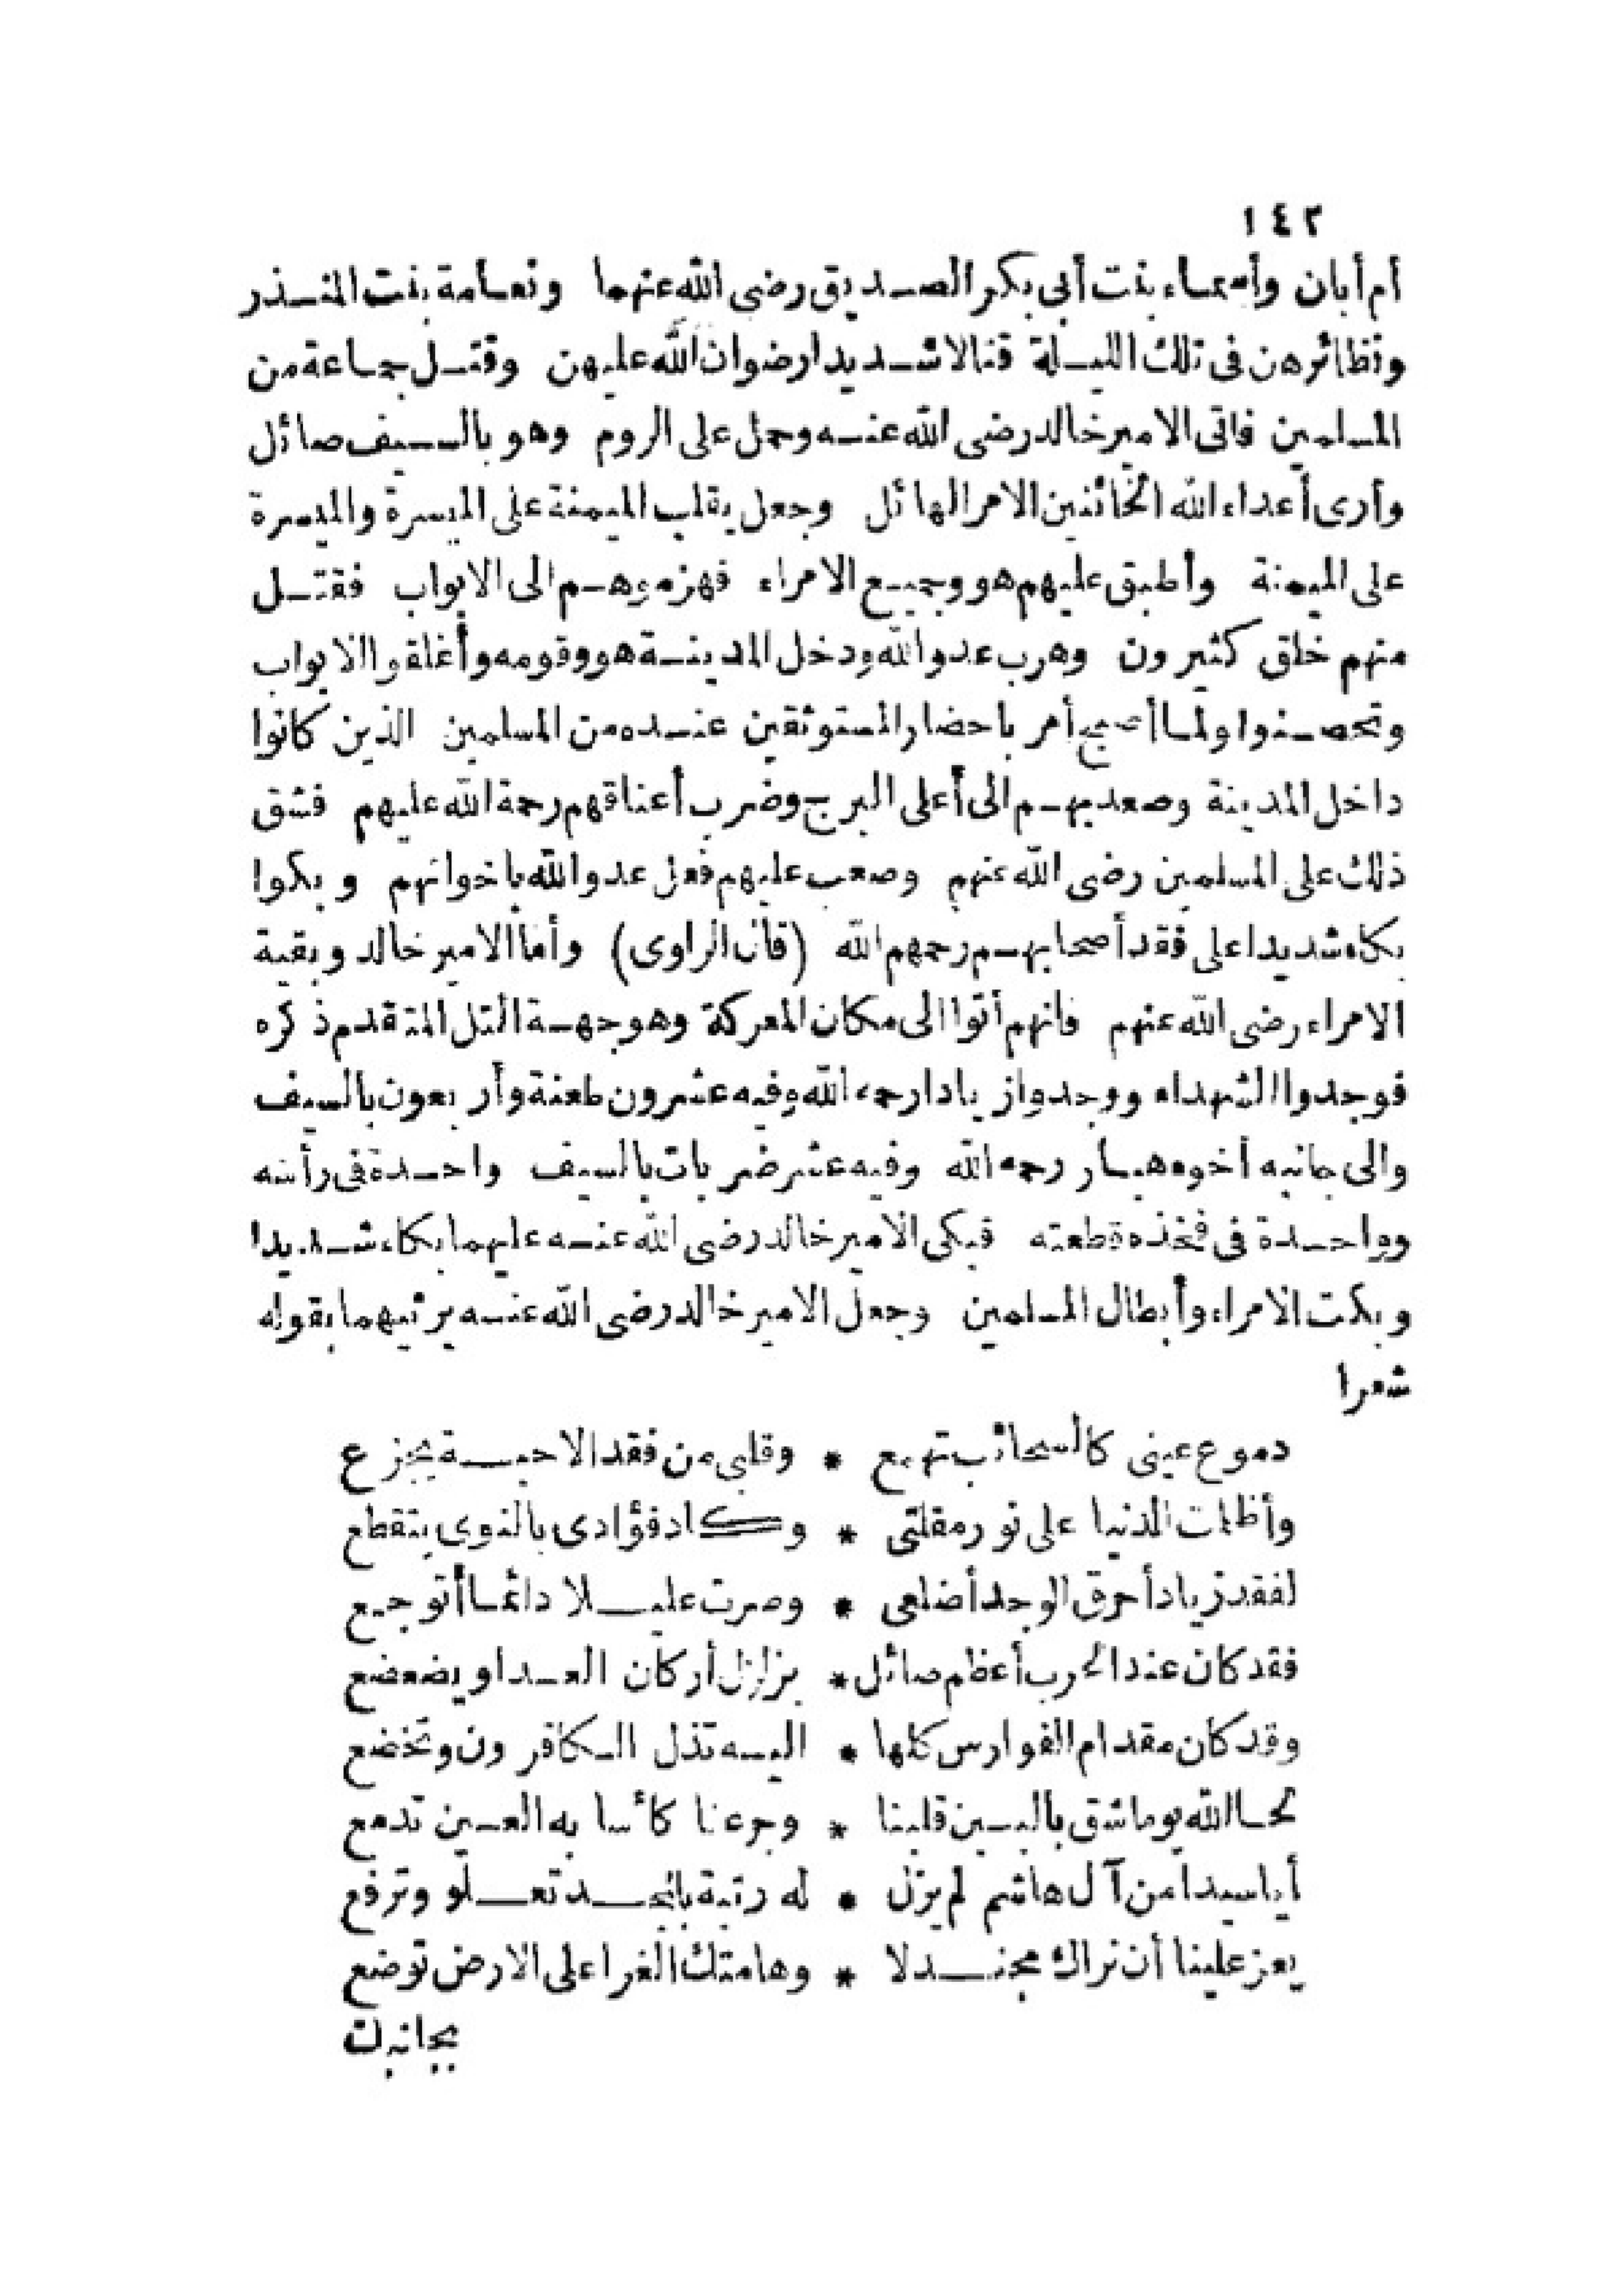 ١٤٢
أم أبان وأسماء بنت أبى بكر الصديق رضى الله عنهما ونعامة بنت المنذر
ونظائرهن فى تلك الليلة قتالا شديدا رضوان الله عليهن وقتل جماعة من
المسلمين فاتى الامير خالد رضى الله عنه وحمل على الروم وهو بالسيف صائل
وأرى أعداء الله الخائنين الامر الهائل وجعل يقلب الميمنة على الميسرة والميسرة
على الميمنة وأطبق عليهم هو وجميع الامراء فهزموهم الى الابواب فقتل
منهم خلق كثيرون وهرب عدو الله ودخل المدينة هو وقومه وأغلقوا الابواب
وتحصنوا ولما أصبح أمر باحضار المستوثقين عنده من المسلمين الذين كانوا
داخل المدينة وصعد بهم الى أعلى البرج وضرب أعناقهم رحمة الله عليهم فشق
ذلك على المسلمين رضى الله عنهم وصعب عليهم فعل عدو الله باخوانهم وبكوا
بكاء شديدا على فقد أصحابهم رحمهم الله (قال الراوى) وأما الامير خالد وبقية
الامراء رضى الله عنهم فانهم أتوا الى مكان المعركة وهو جهة التل المتقدم ذكره
فوجدوا الشهداء ووجدوا زيادا رحمه الله وفيه عشرون طعنة وأربعون بالسيف
والى جانبه أخوه هبار رحمه الله وفيه عشر ضربات بالسيف واحدة فى رأسه
وواحدة فى فخذه قطعته فبكى الامير خالد رضى الله عنه عليهما بكاء شديدا
وبكت الامراء وأبطال المسلمين وجعل الامير خالد رضى الله عنه يرثيهما بقوله
شعرا
دموع عينى كالسحائب تهمع * وقلبى من فقد الاحبة يجزع
وأظلمت الدنيا على نور مقلتى * وكاد فؤادى بالنوى يتقطع
لفقد زياد أحرق الوجد أضلعى * وصرت عليلا دائما أتوجع
فقد كان عند الحرب أعظم صائل * يزلزل أركان العدا ويضعضع
وقد كان مقدام الفوارس كلها * اليه تذل الكافرون وتخضع
لحا الله يوما شق بالبين قلبنا * وجرعنا كأسا به العين تدمع
أيا سيدا من آل هاشم لم يزل * له رتبة بالمجد تعلو وترفع
يعز علينا أن نراك مجندلا * وهامتك الغرا على الارض توضع
بجانبك